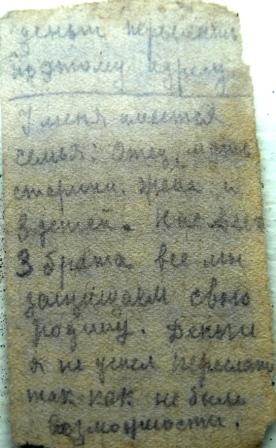 деньги переслать
по этому адресу
У меня имеется
семья: Отец, мать
старики, жена и
3 детей. Нас всех
3 брата все мы
защищаем свою
родину. Деньги
я не успел переслать
так как не было
возможности.